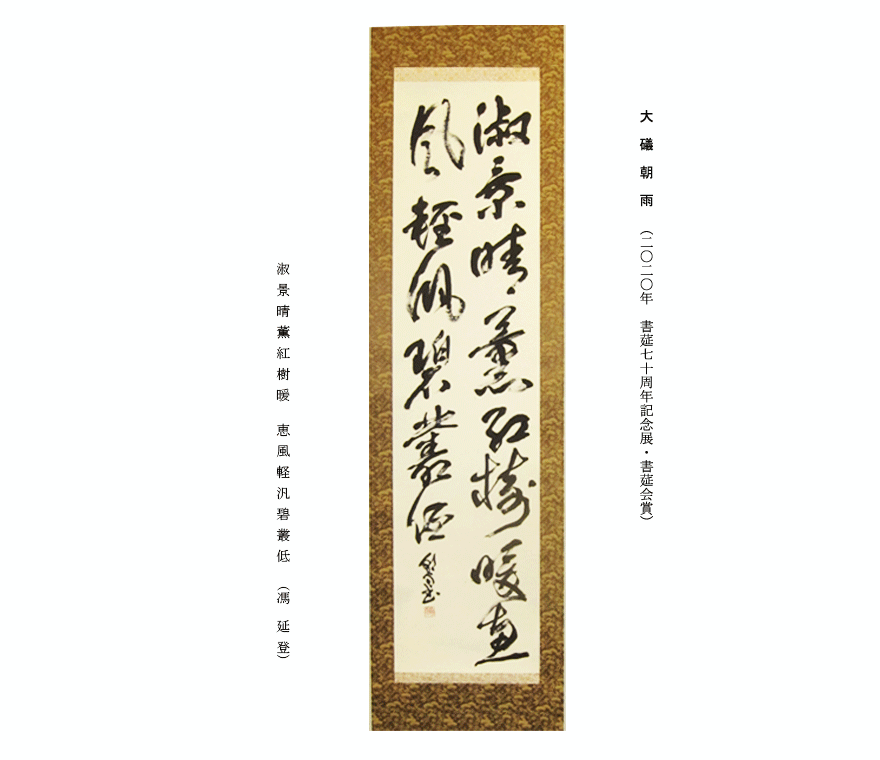 大礒朝雨 （二〇二〇年 書莚七十周年記念展・書莚会賞）
淑景晴薫紅樹暖恵
風軽汎碧叢低
淑景晴薫紅樹暖 恵風軽汎碧叢低 （馮 延登）